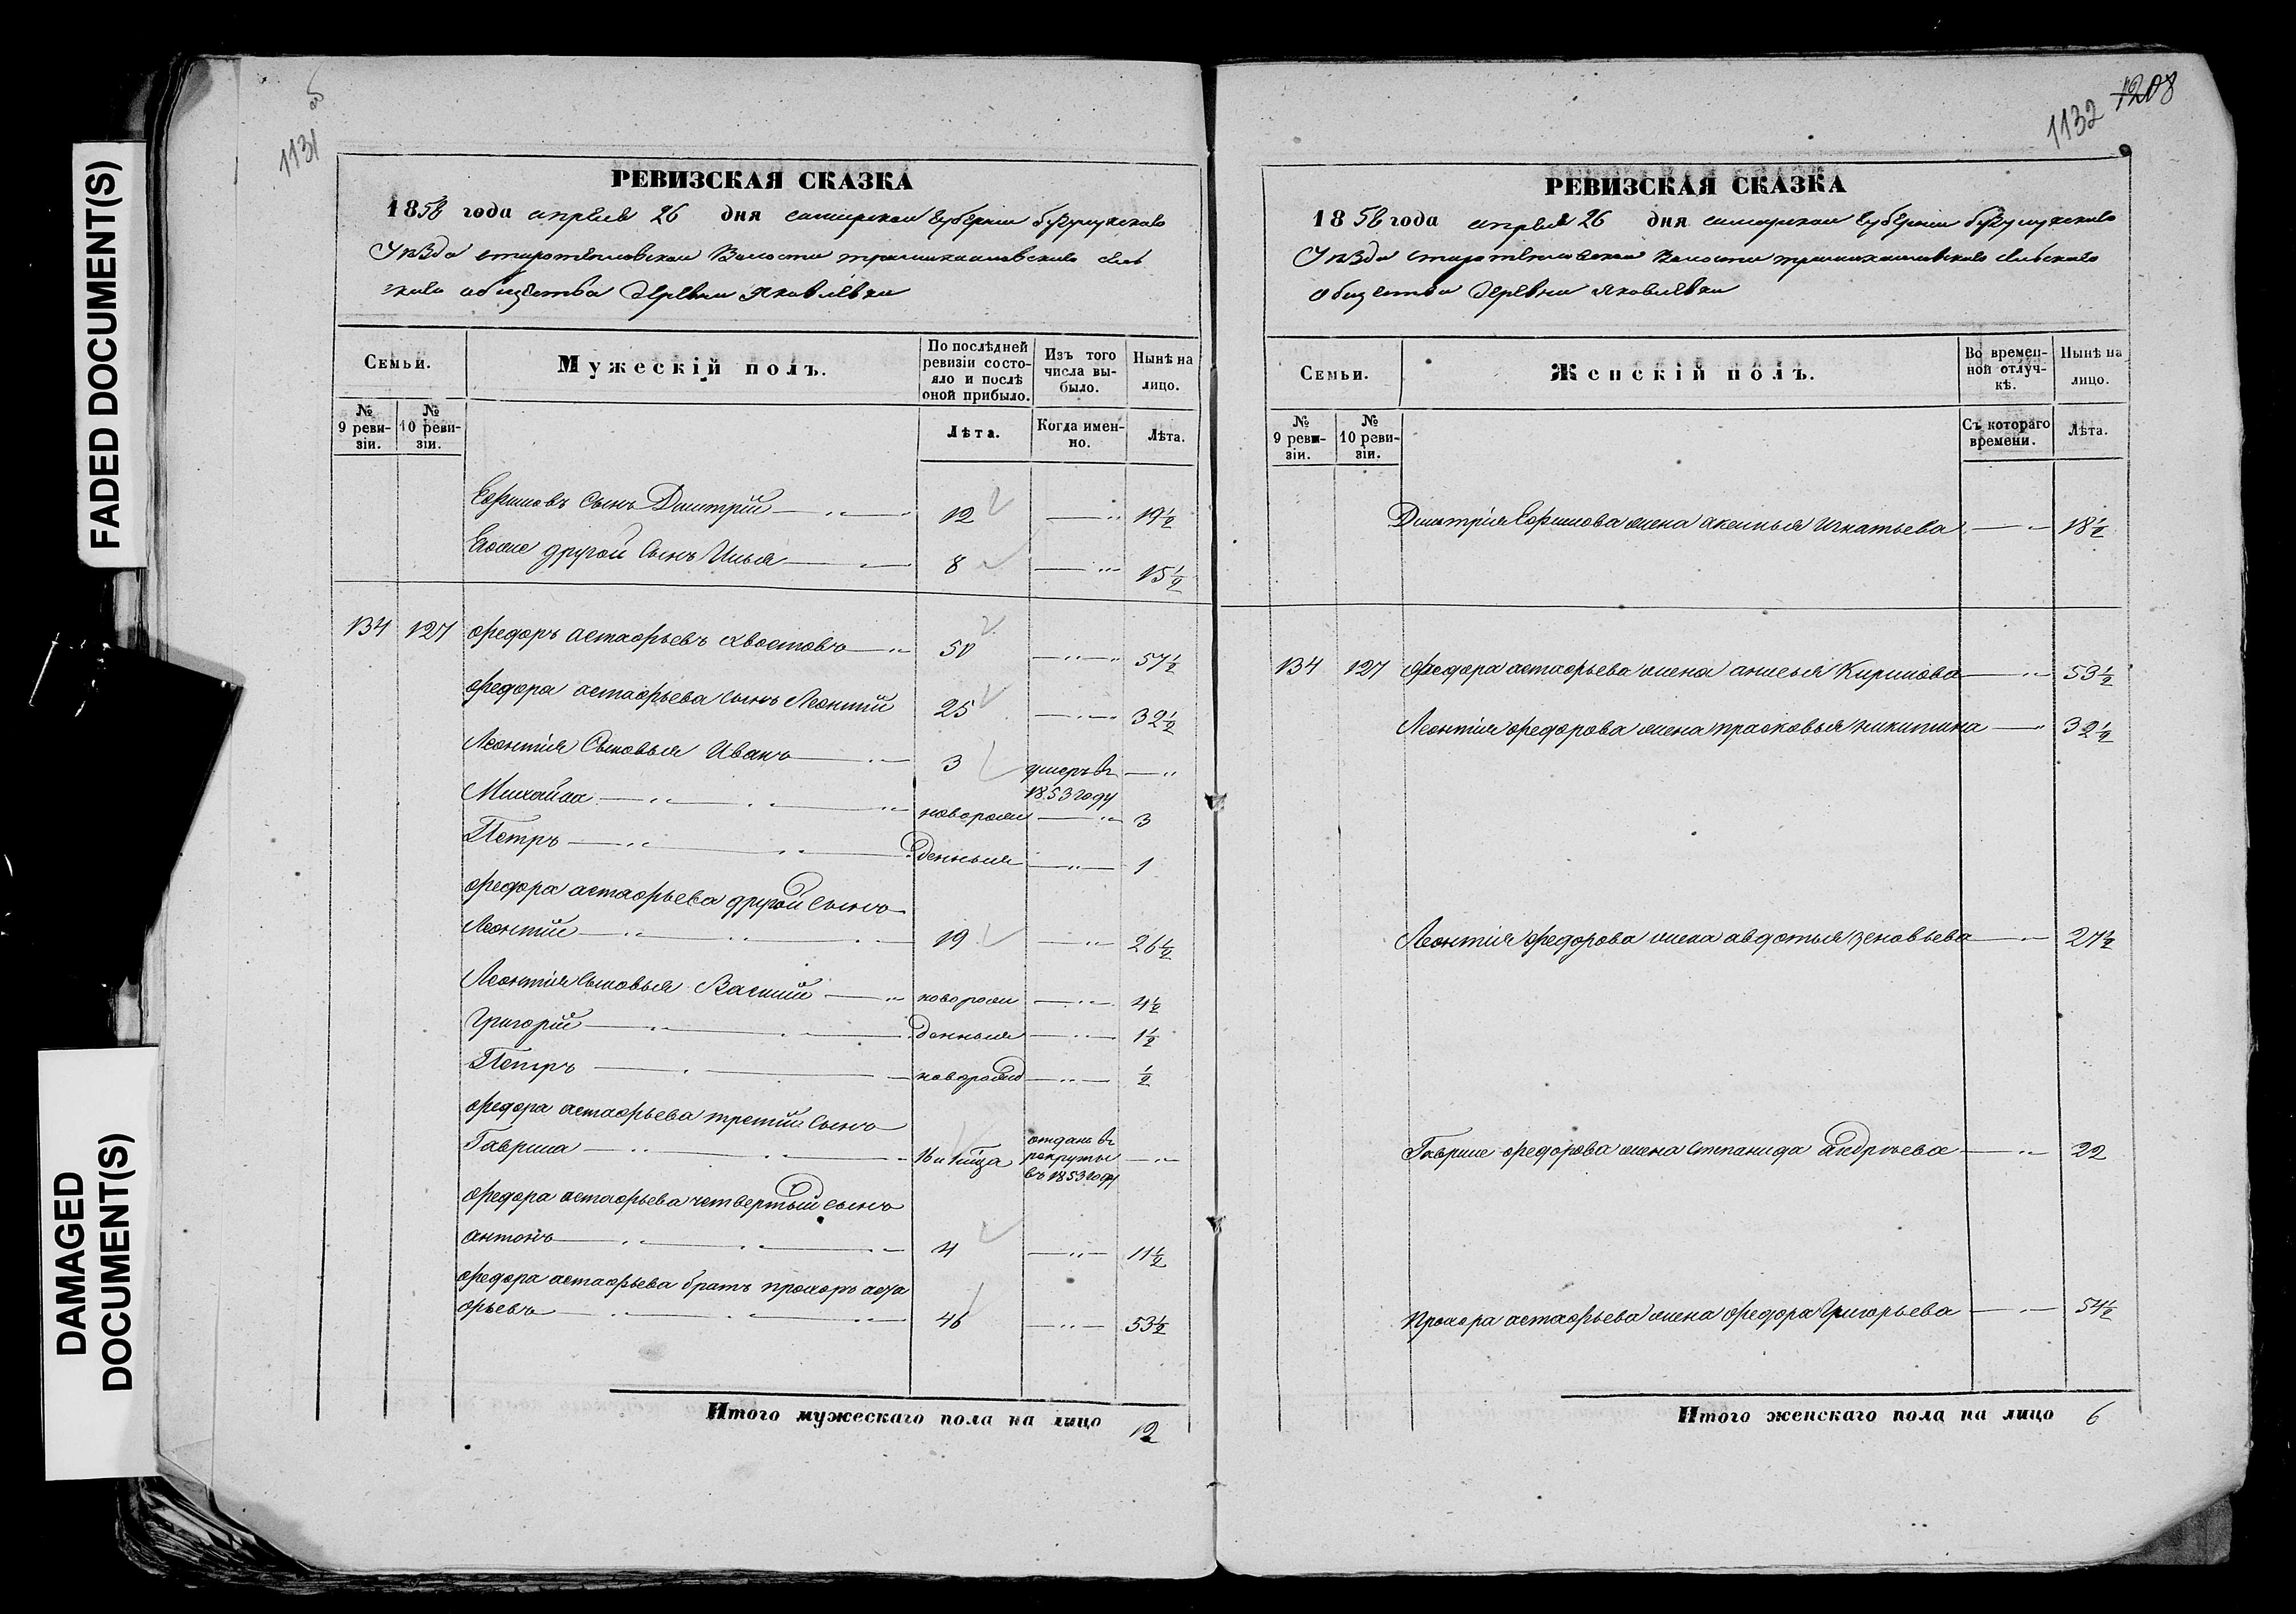 FADED DOCUMENT(S)
DAMAGED
DOCUMENT(S)
1131
РЕВИЗСКАЯ СКАЗКА
1858 года апреля 26 дня самарской губернии бузулукскаго
Уѣзда старотепловской Волости твской сель
скаго общества деревни Яковлевки
Семьи.
Мужескій полъ.
По послѣдней ревизіи состояло и послѣ оной прибыло.
Изъ того числа выбыло.
Нынѣ на лицо.
№ 9 ревизіи.
№ 10 ревизіи.
Лѣта.
Когда именно.
Лѣта.
Ефимовъ сынъ Дмитрій 12 — 19½
Егоже другой сынъ Илья 8 — 15½
134 127 Федоръ астафьевъ хвостовъ 50 — 57½
Федора астафьева сынъ Леонтій 25 — 32½
Леонтія Сыновья Иванъ 3 умеръ въ —
1853 году
Михайла новорож — 3
Петръ денныя — 1
Федора астафьева другой сынъ
Леонтій 19 — 26½
Леонтія сыновья Василий новорож — 4½
Григорій денныя — 1½
Петръ новорожд — ½
Федора астафьева третий сынъ
Гаврила 16 отданъ въ рекруты въ 1853 году —
Федора астафьева четвертый сынъ
антонъ 4 — 11½
Федора астафьева братъ прохоръ аста
фьевъ 46 — 53½
Итого мужескаго пола на лицо 12
1132 1208
РЕВИЗСКАЯ СКАЗКА
1858 года апреля 26 дня самарской губернии бузулукскаго
Уѣзда старотепловской Волости сельскаго
общества деревни Яковлевки
Семьи.
Женскій полъ.
Во временной отлучкѣ.
Нынѣ на лицо.
№ 9 ревизіи.
№ 10 ревизіи.
Съ котораго времени.
Лѣта.
Дмитрія Ефимова жена аксинья игнатьева — 18½
134 127 Федора астафьева жена анисья Кирилова — 53½
Леонтія федорова жена прасковья никитина — 32½
Леонтія федорова жена авдотья зеновьева — 27½
Гаврилы федорова жена степанида андрѣева — 22
Прохора астафьева жена федора Григорьева — 54½
Итого женскаго пола на лицо 6